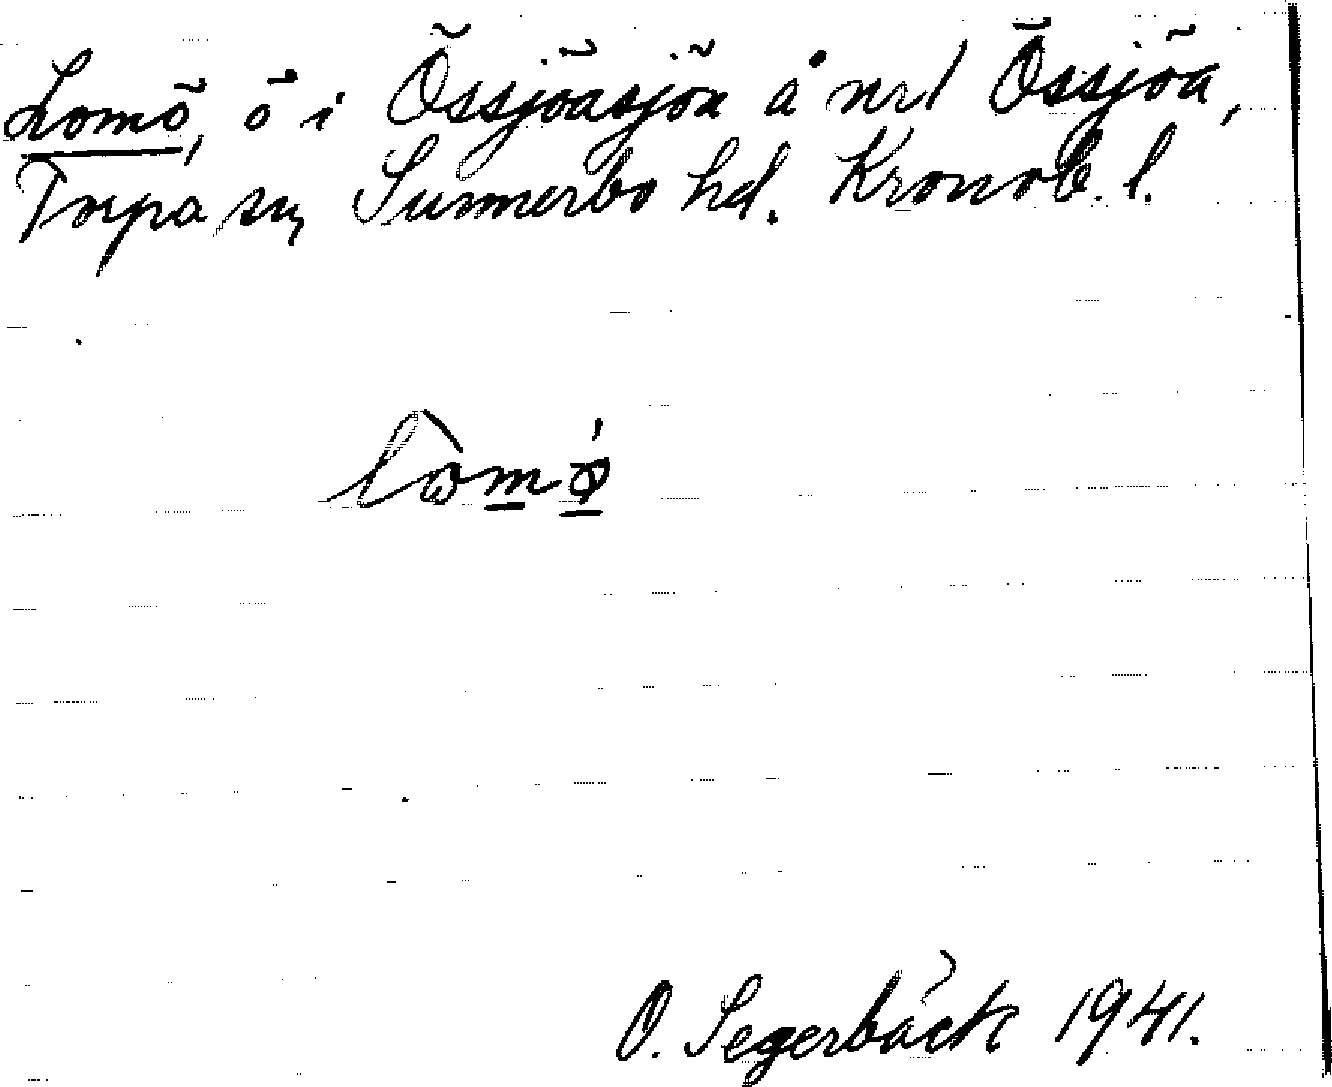 Lomö, ö i Össjöasjön å nr 1 Össjöa,
Torpa sn, Sunnerbo hd. Kronob. l.
lòmø̀
O. Segerbäck 1941.